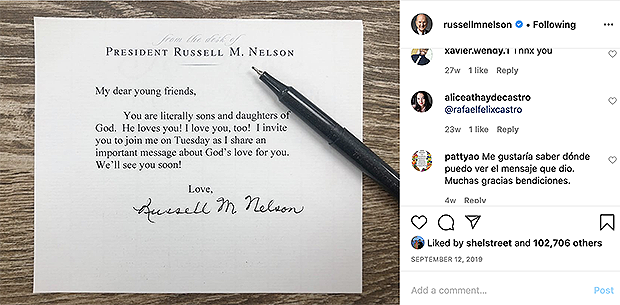 from the desk of
PRESIDENT RUSSELL M. NELSON
My dear young friends,
You are literally sons and daughters of
God. He loves you! I love you, too! I invite
you to join me on Tuesday as I share an
important message about God's love for you.
We'll see you soon!
Love,
Russell M Nelson
russellmnelson • Following
xavier.wendy.1 Thnx you
27w 1 like Reply
aliceathaydecastro
@rafaelfelixcastro
23w 1 like Reply
pattyao Me gustaría saber dónde
puedo ver el mensaje que dio.
Muchas gracias bendiciones.
4w Reply
Liked by shelstreet and 102,706 others
SEPTEMBER 12, 2019
Add a comment...
Post